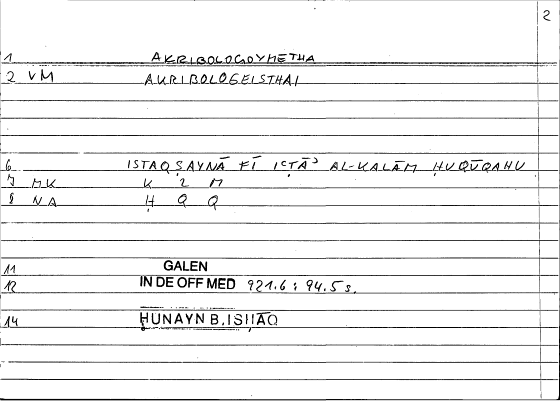 2
1 AKRIBOLOGOYMETHA
2 VM AKRIBOLOGEISTHAI
6 ISTAQṢAYNĀ FĪ IʿṬĀʾ AL-KALĀM ḤUQŪQAHU
7 MK K 2 M
8 NA Ḥ Q Q
11 GALEN
12 IN DE OFF MED 921.6 : 94.5 s.
14 ḤUNAYN B. ISḤĀQ